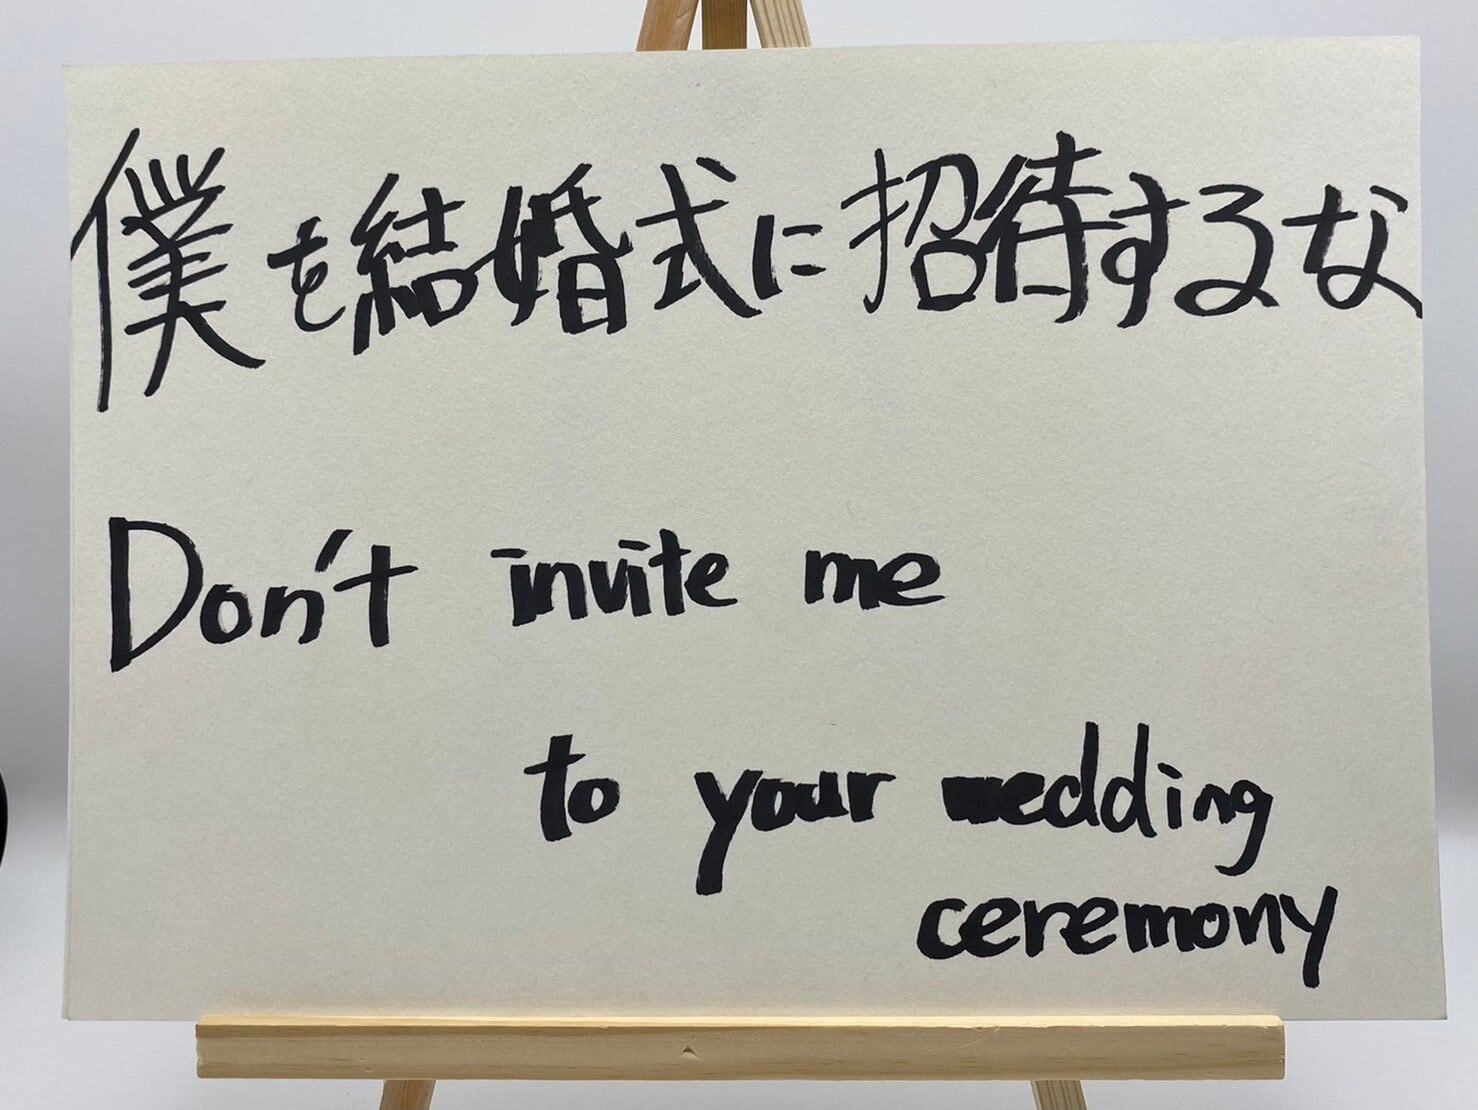 僕を結婚式に招待するな
Don't invite me
to your wedding
ceremony